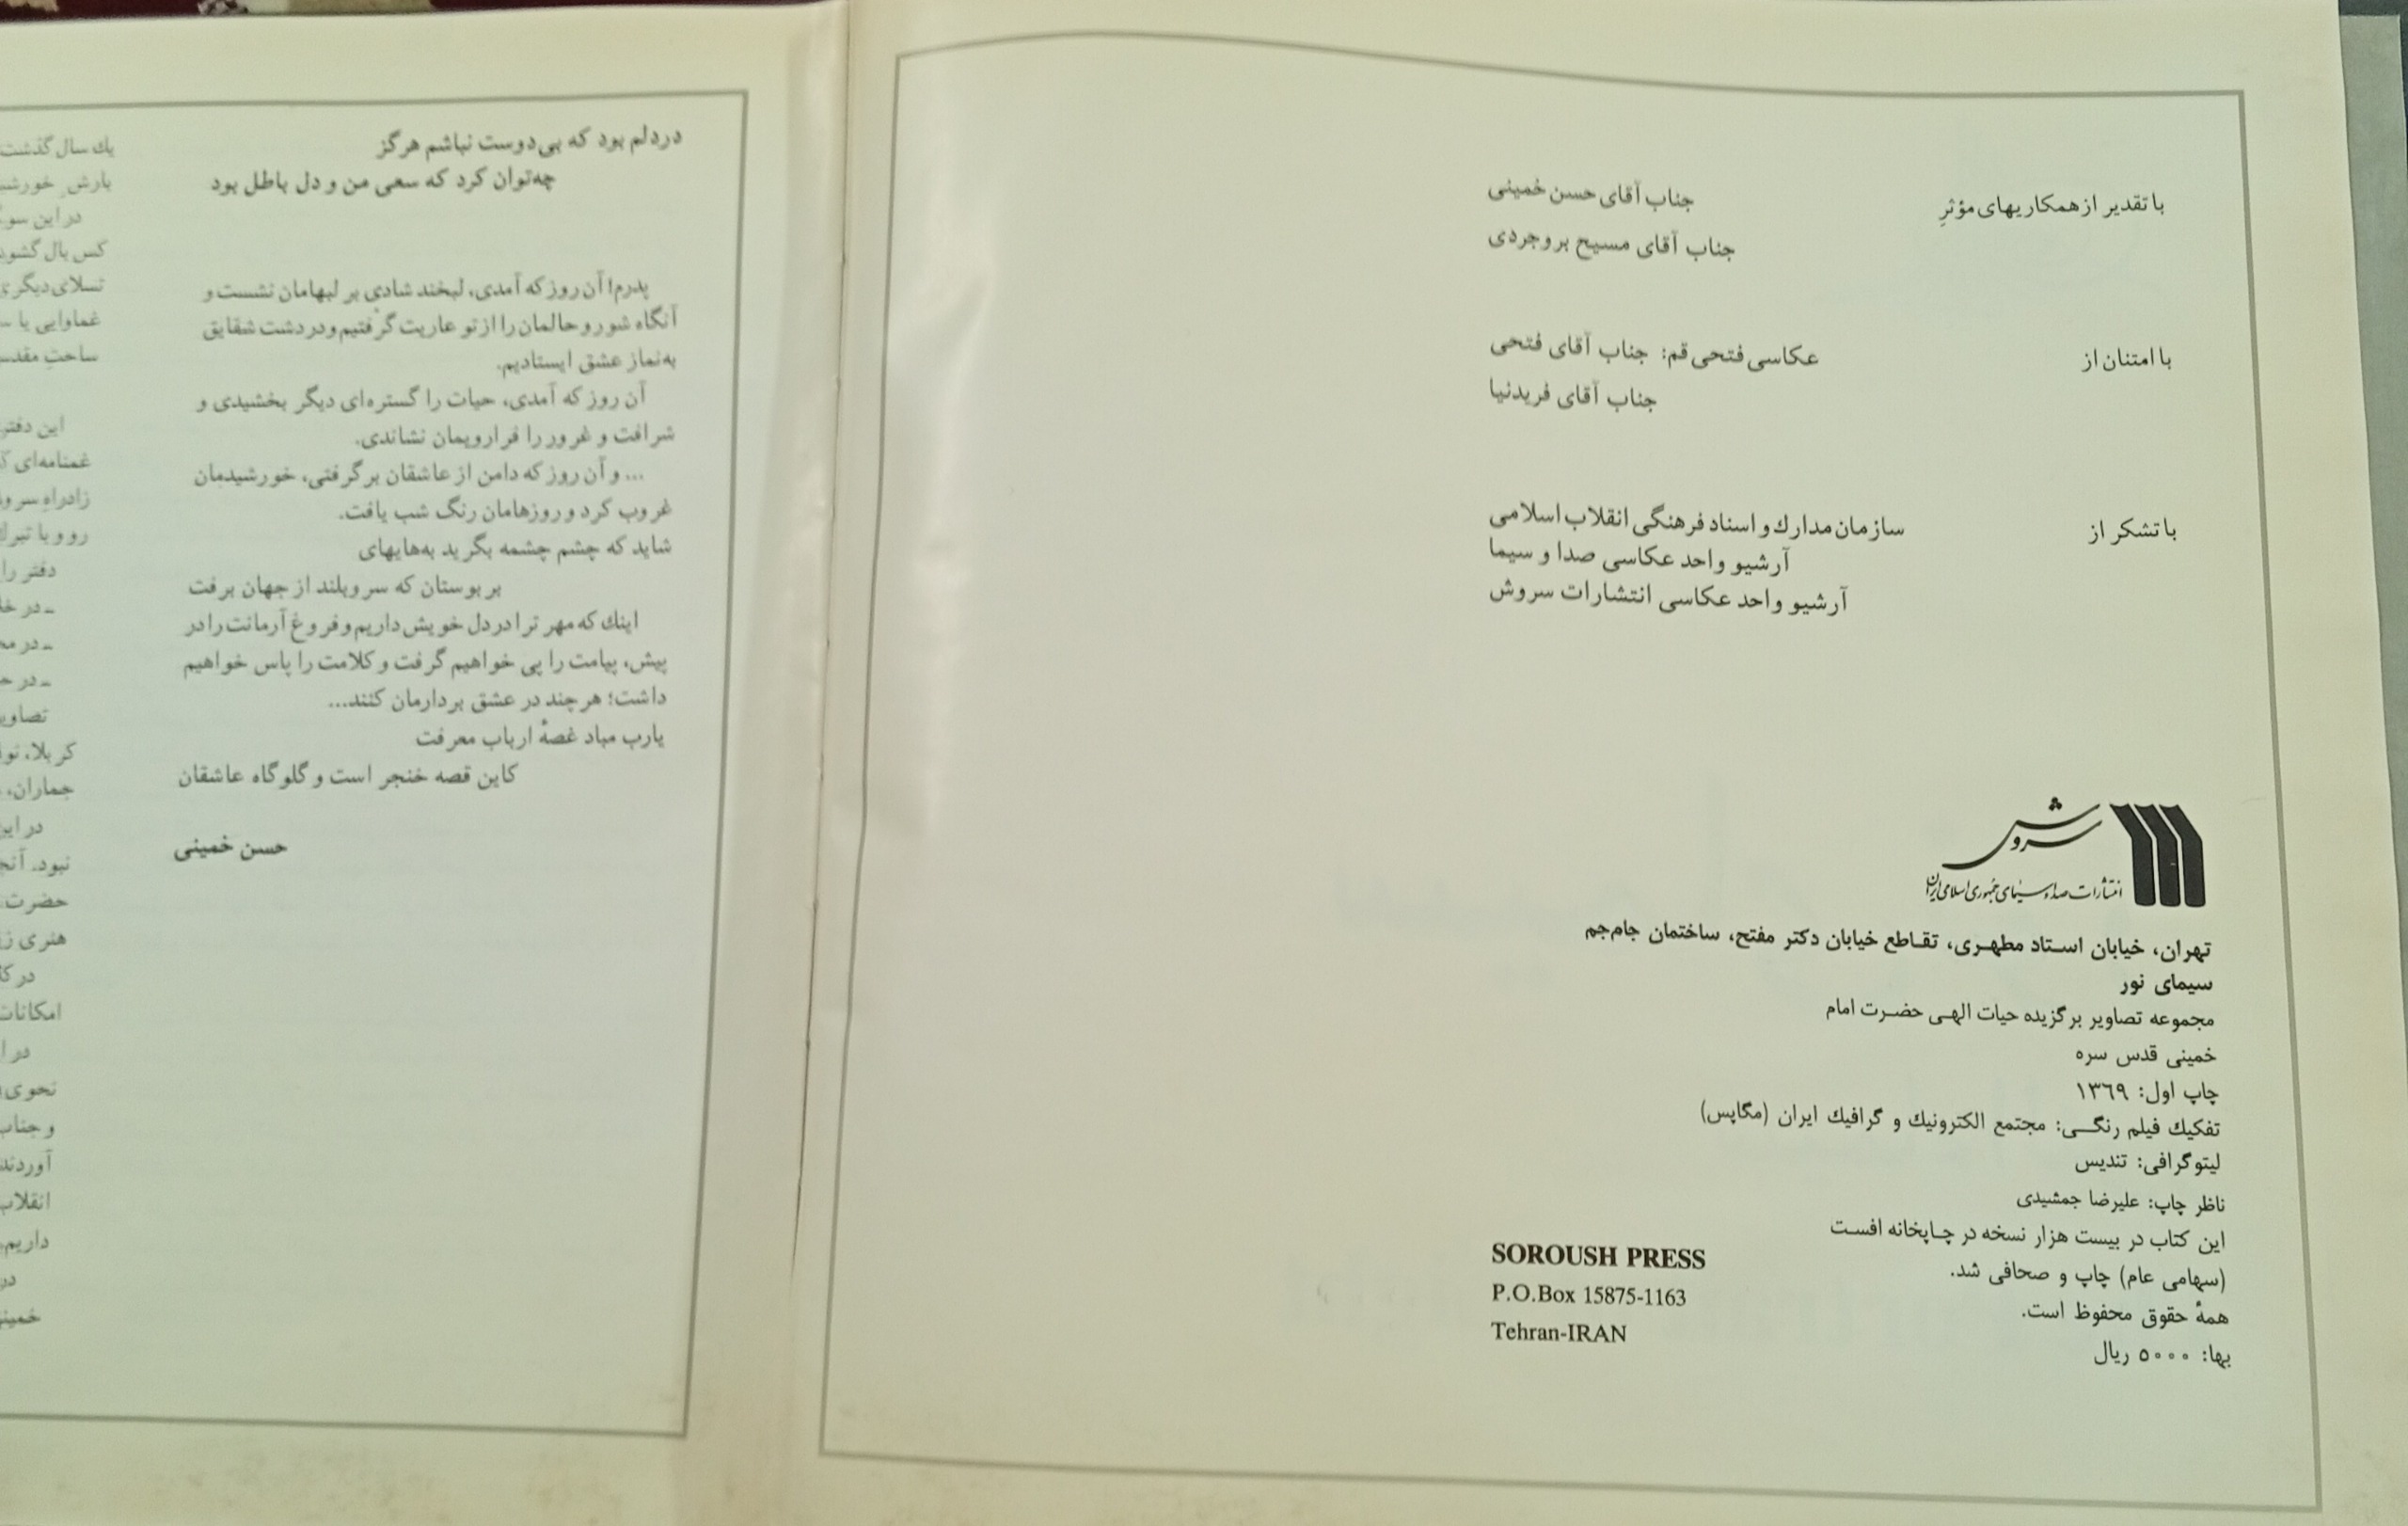 با تقدیر از همکاریهای مؤثرِ
جناب آقای حسن خمینی
جناب آقای مسیح بروجردی
با امتنان از
عکاسی فتحی قم: جناب آقای فتحی
جناب آقای فریدنیا
با تشکر از
سازمان مدارك و اسناد فرهنگی انقلاب اسلامی
آرشیو واحد عکاسی صدا و سیما
آرشیو واحد عکاسی انتشارات سروش
سروش
انتشارات صدا و سیمای جمهوری اسلامی ایران
تهران، خیابان استاد مطهری، تقاطع خیابان دکتر مفتح، ساختمان جام‌جم
سیمای نور
مجموعه تصاویر برگزیده حیات الهی حضرت امام
خمینی قدس سره
چاپ اول: ۱۳٦۹
تفکیك فیلم رنگی: مجتمع الکترونیك و گرافیك ایران (مگاپس)
لیتوگرافی: تندیس
ناظر چاپ: علیرضا جمشیدی
این کتاب در بیست هزار نسخه در چاپخانه افست
(سهامی عام) چاپ و صحافی شد.
همهٔ حقوق محفوظ است.
بها: ۵۰۰۰ ریال
SOROUSH PRESS
P.O.Box 15875-1163
Tehran-IRAN
در دلم بود که بی‌دوست نباشم هرگز
چه‌توان کرد که سعی من و دل باطل بود
پدرم! آن روز که آمدی، لبخند شادی بر لبهامان نشست و
آنگاه شور و حالمان را از تو عاریت گرفتیم و در دشت شقایق
به‌نماز عشق ایستادیم.
آن روز که آمدی، حیات را گستره‌ای دیگر بخشیدی و
شرافت و غرور را فرارویمان نشاندی.
... و آن روز که دامن از عاشقان برگرفتی، خورشیدمان
غروب کرد و روزهامان رنگ شب یافت.
شاید که چشم چشمه بگرید به‌هایهای
بر بوستان که سرو بلند از جهان برفت
اینك که مهر ترا در دل خویش داریم و فروغ آرمانت را در
پیش، پیامت را پی خواهیم گرفت و کلامت را پاس خواهیم
داشت؛ هر چند در عشق بردارمان کنند...
یارب مباد غصهٔ ارباب معرفت
کاین قصه خنجر است و گلوگاه عاشقان
حسن خمینی
یك سال گذشت
بارش
در این
کس بال
تسلای دیگر
غماوایی یا
ساحتِ
این دفتر
غمنامه‌ای
زادراهِ
رو و با
دفتر را
ـ در
ـ در
ـ در
تصاویر
کربلا،
جماران،
در این
نبود.
حضرت
هنری
در
امکانات
در
نحوی
و جناب
آوردند
انقلاب
داریم.
در